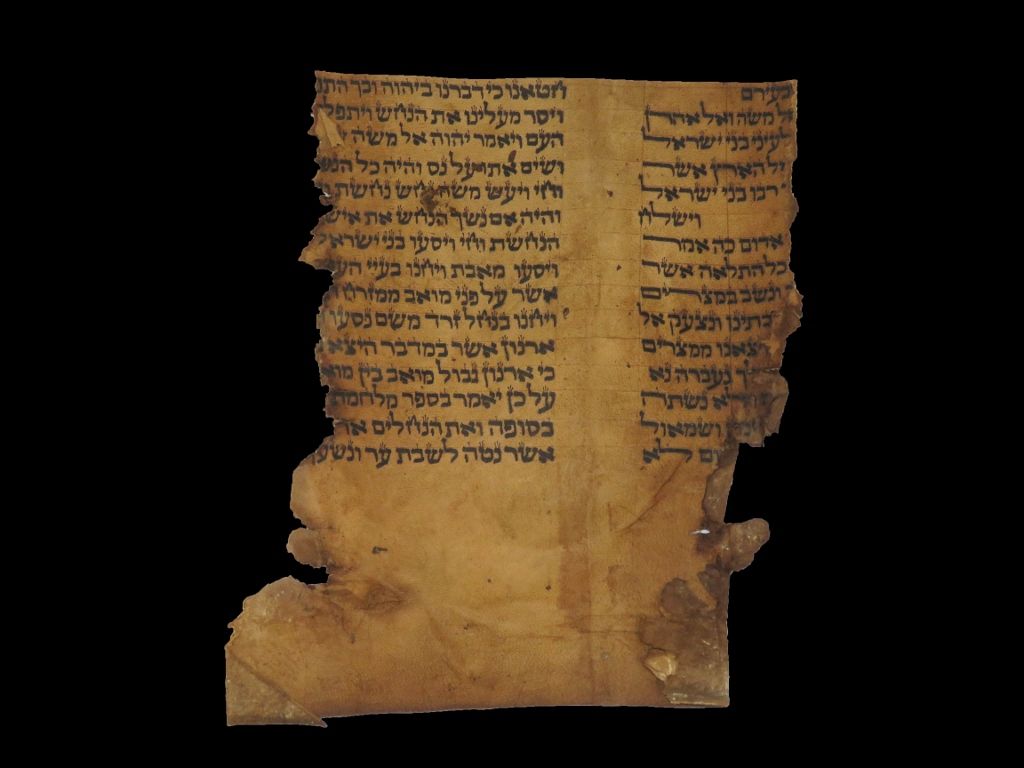 בעירם
משה ואל אהרן
לעיני בני ישראל
הארץ אשר
רבו בני ישראל
וישלח
אדום כה אמר
כל התלאה אשר
ונשב במצרים
ונצעק אל
ויצאנו ממצרים
נעברה נא
נשתה
ושמאול
לא
חטאנו כי דברנו ביהוה ובך
ויסר מעלינו את הנחש ויתפלל
העם ויאמר יהוה אל משה
ושים אתו על נס והיה כל
וחי ויעש משה נחש נחשת
והיה אם נשך הנחש את איש
הנחשת וחי ויסעו בני ישראל
ויסעו מאבת ויחנו בעיי
אשר על פני מואב ממזרח
ויחנו בנחל זרד משם נסעו
ארנון אשר במדבר היצא
כי ארנון גבול מואב בין
על כן יאמר בספר מלחמת
בסופה ואת הנחלים
אשר נטה לשבת ער ונשען